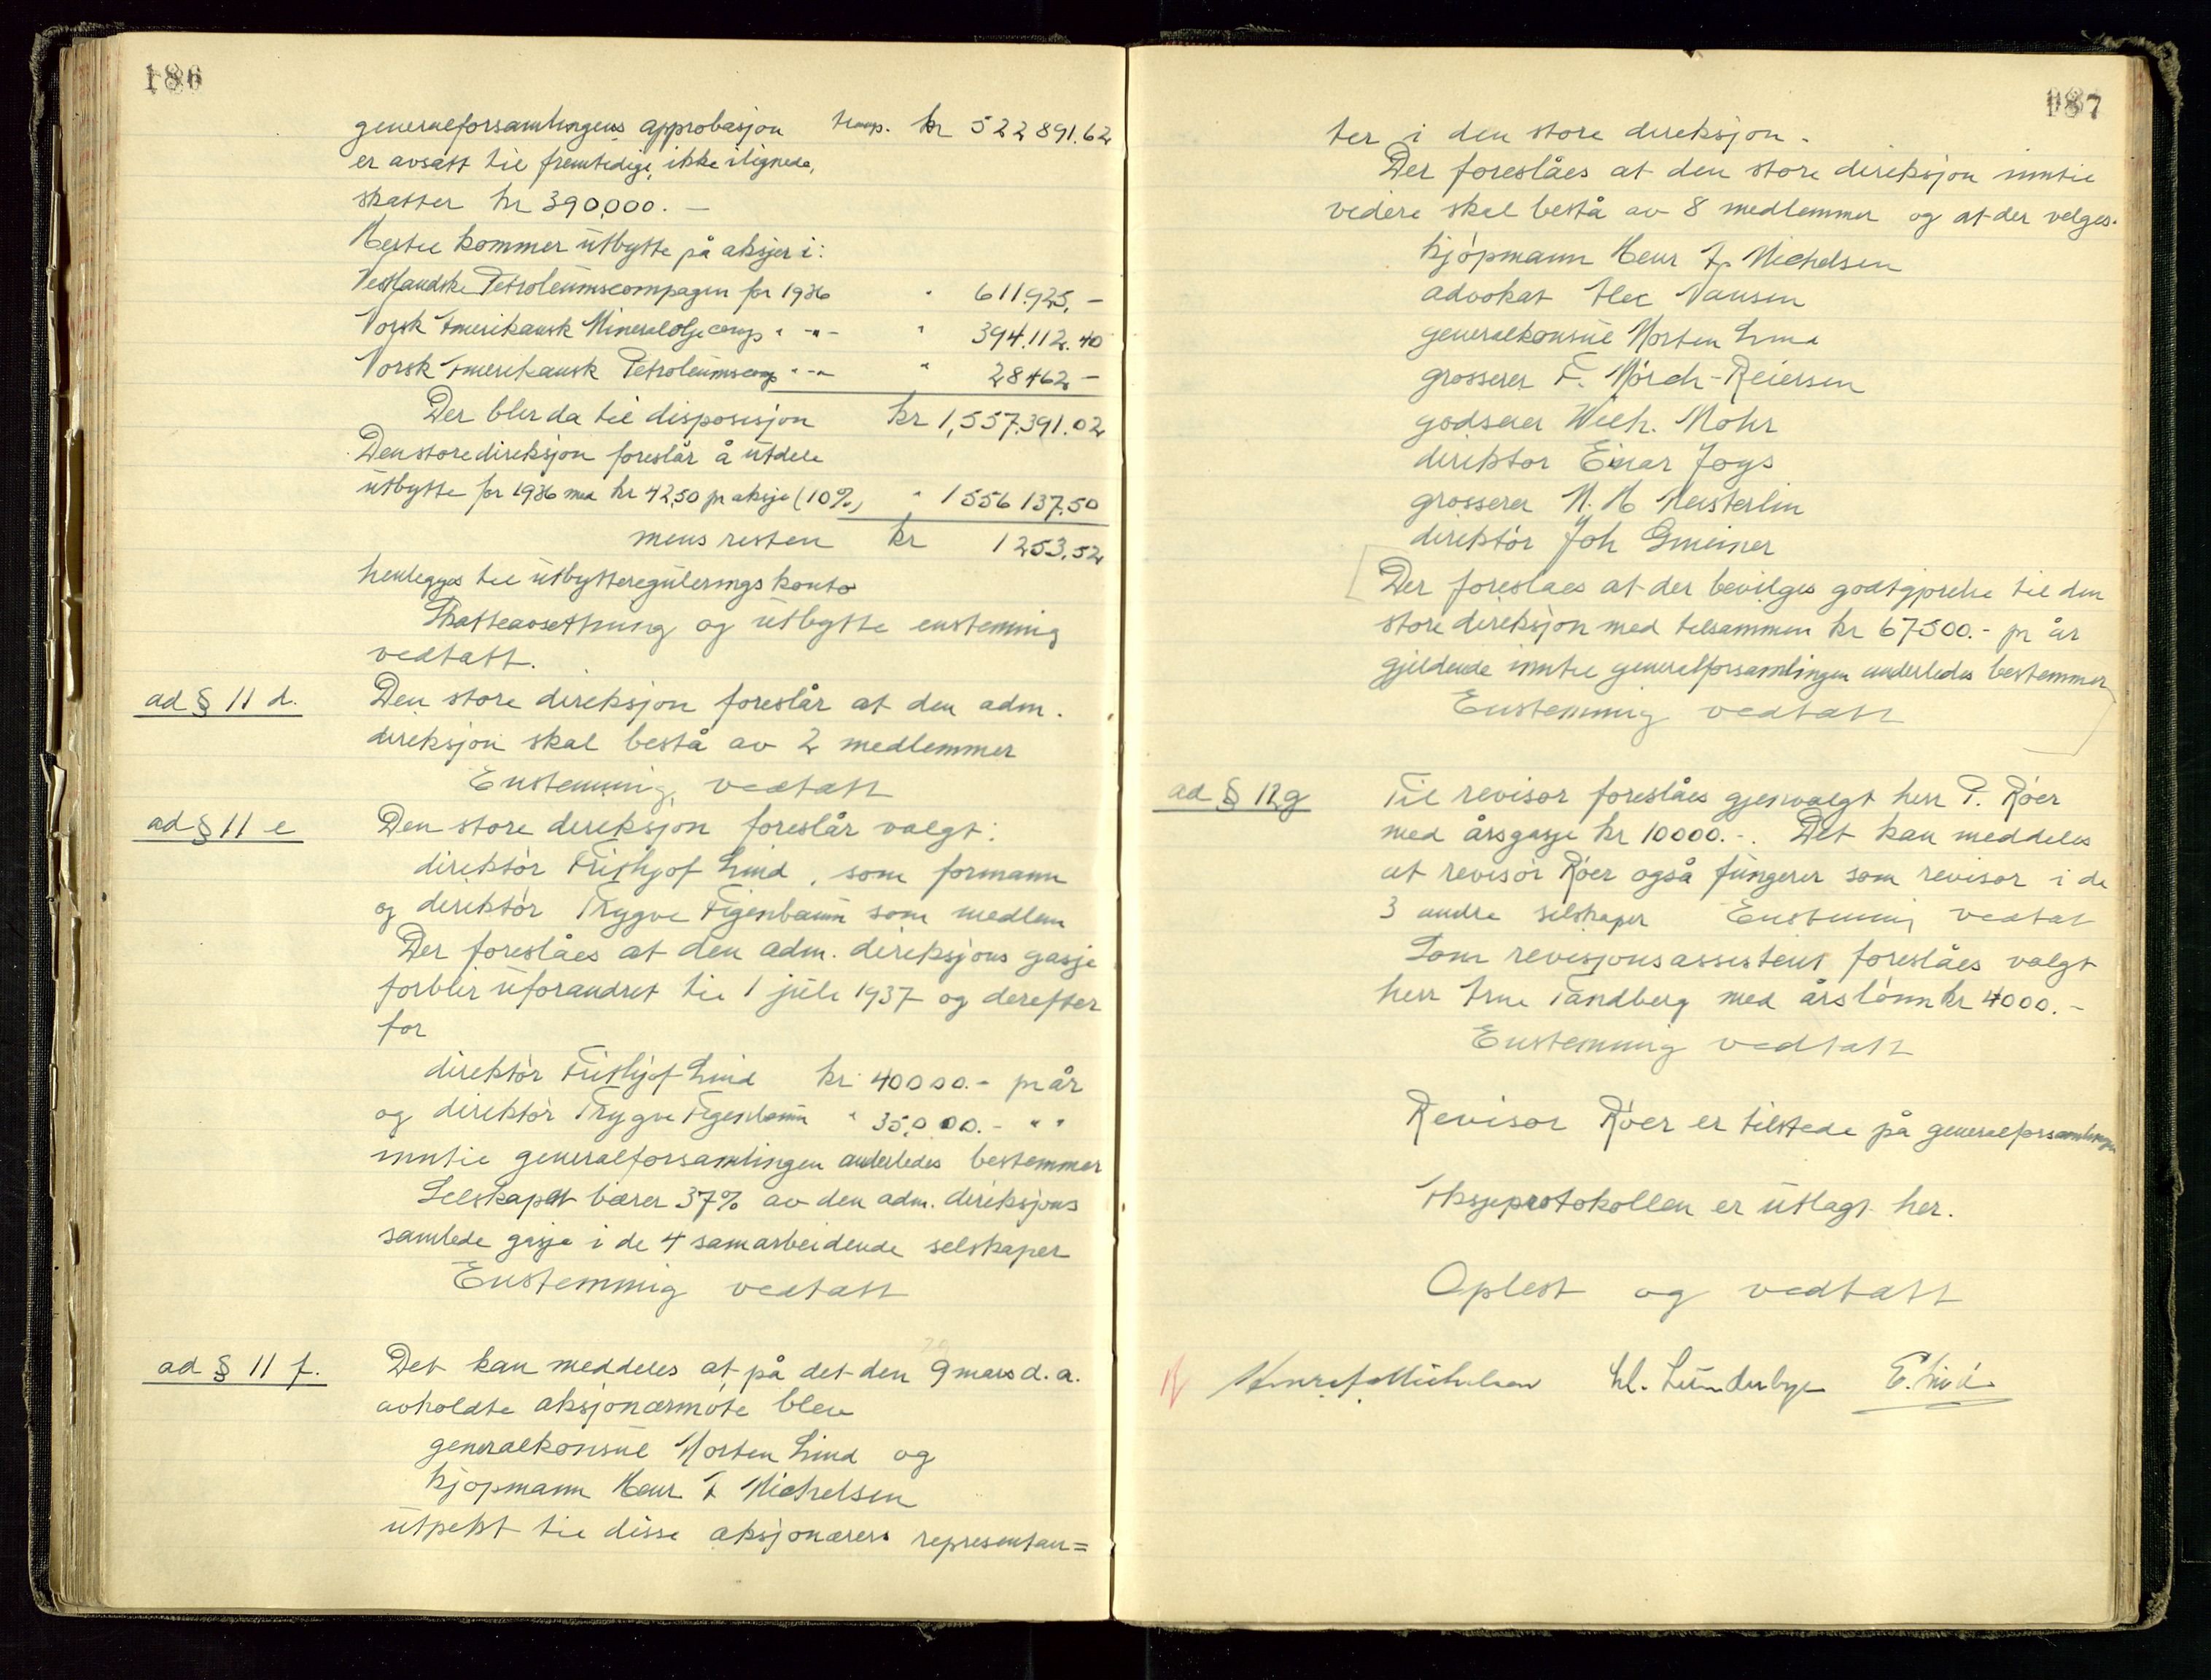 186
generalforsamlingens approbasjon transp. kr 522891.62
er avsatt til fremtidige, ikke ilignede,
skatter kr 390,000.—
Hertil kommer utbytte på aksjer i:
Vestlandske Petroleumscompagni for 1936 " 611.925,—
Norsk Amerikansk Mineraloljecomp " -"- " 394.112.40
Norsk Amerikansk Petroleumscomp " -"- " 28462—
Der blir da til disposisjon kr 1,557.391.02
Den store direksjon foreslår å utdele
utbytte for 1936 med kr 42,50 pr aksje (10%) " 1556137.50
mens resten kr 1253.52
henlegges til utbyttereguleringskonto
Skatteavsetning og utbytte enstemmig
vedtatt.
ad § 11 d. Den store direksjon foreslår at den adm.
direksjon skal bestå av 2 medlemmer
Enstemmig vedtatt
ad § 11 e Den store direksjon foreslår valgt:
direktör Frithjof Lind, som formann
og direktör Trygve Figenbaum som medlem
Der foreslåes at den adm. direksjons gasje
forblir uforandret til 1 juli 1937 og derefter
for
direktör Frithjof Lind kr 40000.- pr år
og direktör Trygve Figenbaum " 35.000.- " "
inntil generalforsamlingen anderledes bestemmer
Selskapet bærer 37% av den adm. direksjons
samlede gasje i de 4 samarbeidende selskaper
Enstemmig vedtatt
ad § 11 f. Det kan meddeles at på det den 9 mars d.a.
avholdte aksjonærmöte blev
generalkonsul Morten Lind og
kjöpmann Henr. F. Michelsen
utpekt til disse aksjonærers representan=
187
ter i den store direksjon.
Der foreslåes at den store direksjon inntil
videre skal bestå av 8 medlemmer og at der velges.
kjöpmann Henr. F. Michelsen
advokat Alex Nansen
generalkonsul Morten Lind
grosserer F. Mörch-Reiersen
godseier Wilh. Mohr
direktör Einar Joys
grosserer N. H. Keisterlin
direktör Joh Gmeiner
Der foreslaes at der bevilges godtgjörelse til den
store direksjon med tilsammen kr 67500.- pr år
gjeldende inntil generalforsamlingen anderledes bestemmer
Enstemmig vedtatt
ad § 12g Til revisor foreslåes gjenvalgt herr P. Röer
med årsgasje kr 10000.-. Det kan meddeles
at revisor Röer også fungerer som revisor i de
3 andre selskaper Enstemmig vedtat
Som revisjonsassistent foreslåes valgt
herr Arne Tandberg med årslönn kr 4000.-
Enstemmig vedtatt
Revisor Röer er tilstede på generalforsamlingen
Aksjeprotokollen er utlagt her.
Oplest og vedtatt
Henr. F. Michelsen Hl. Lunderbye F. Lind